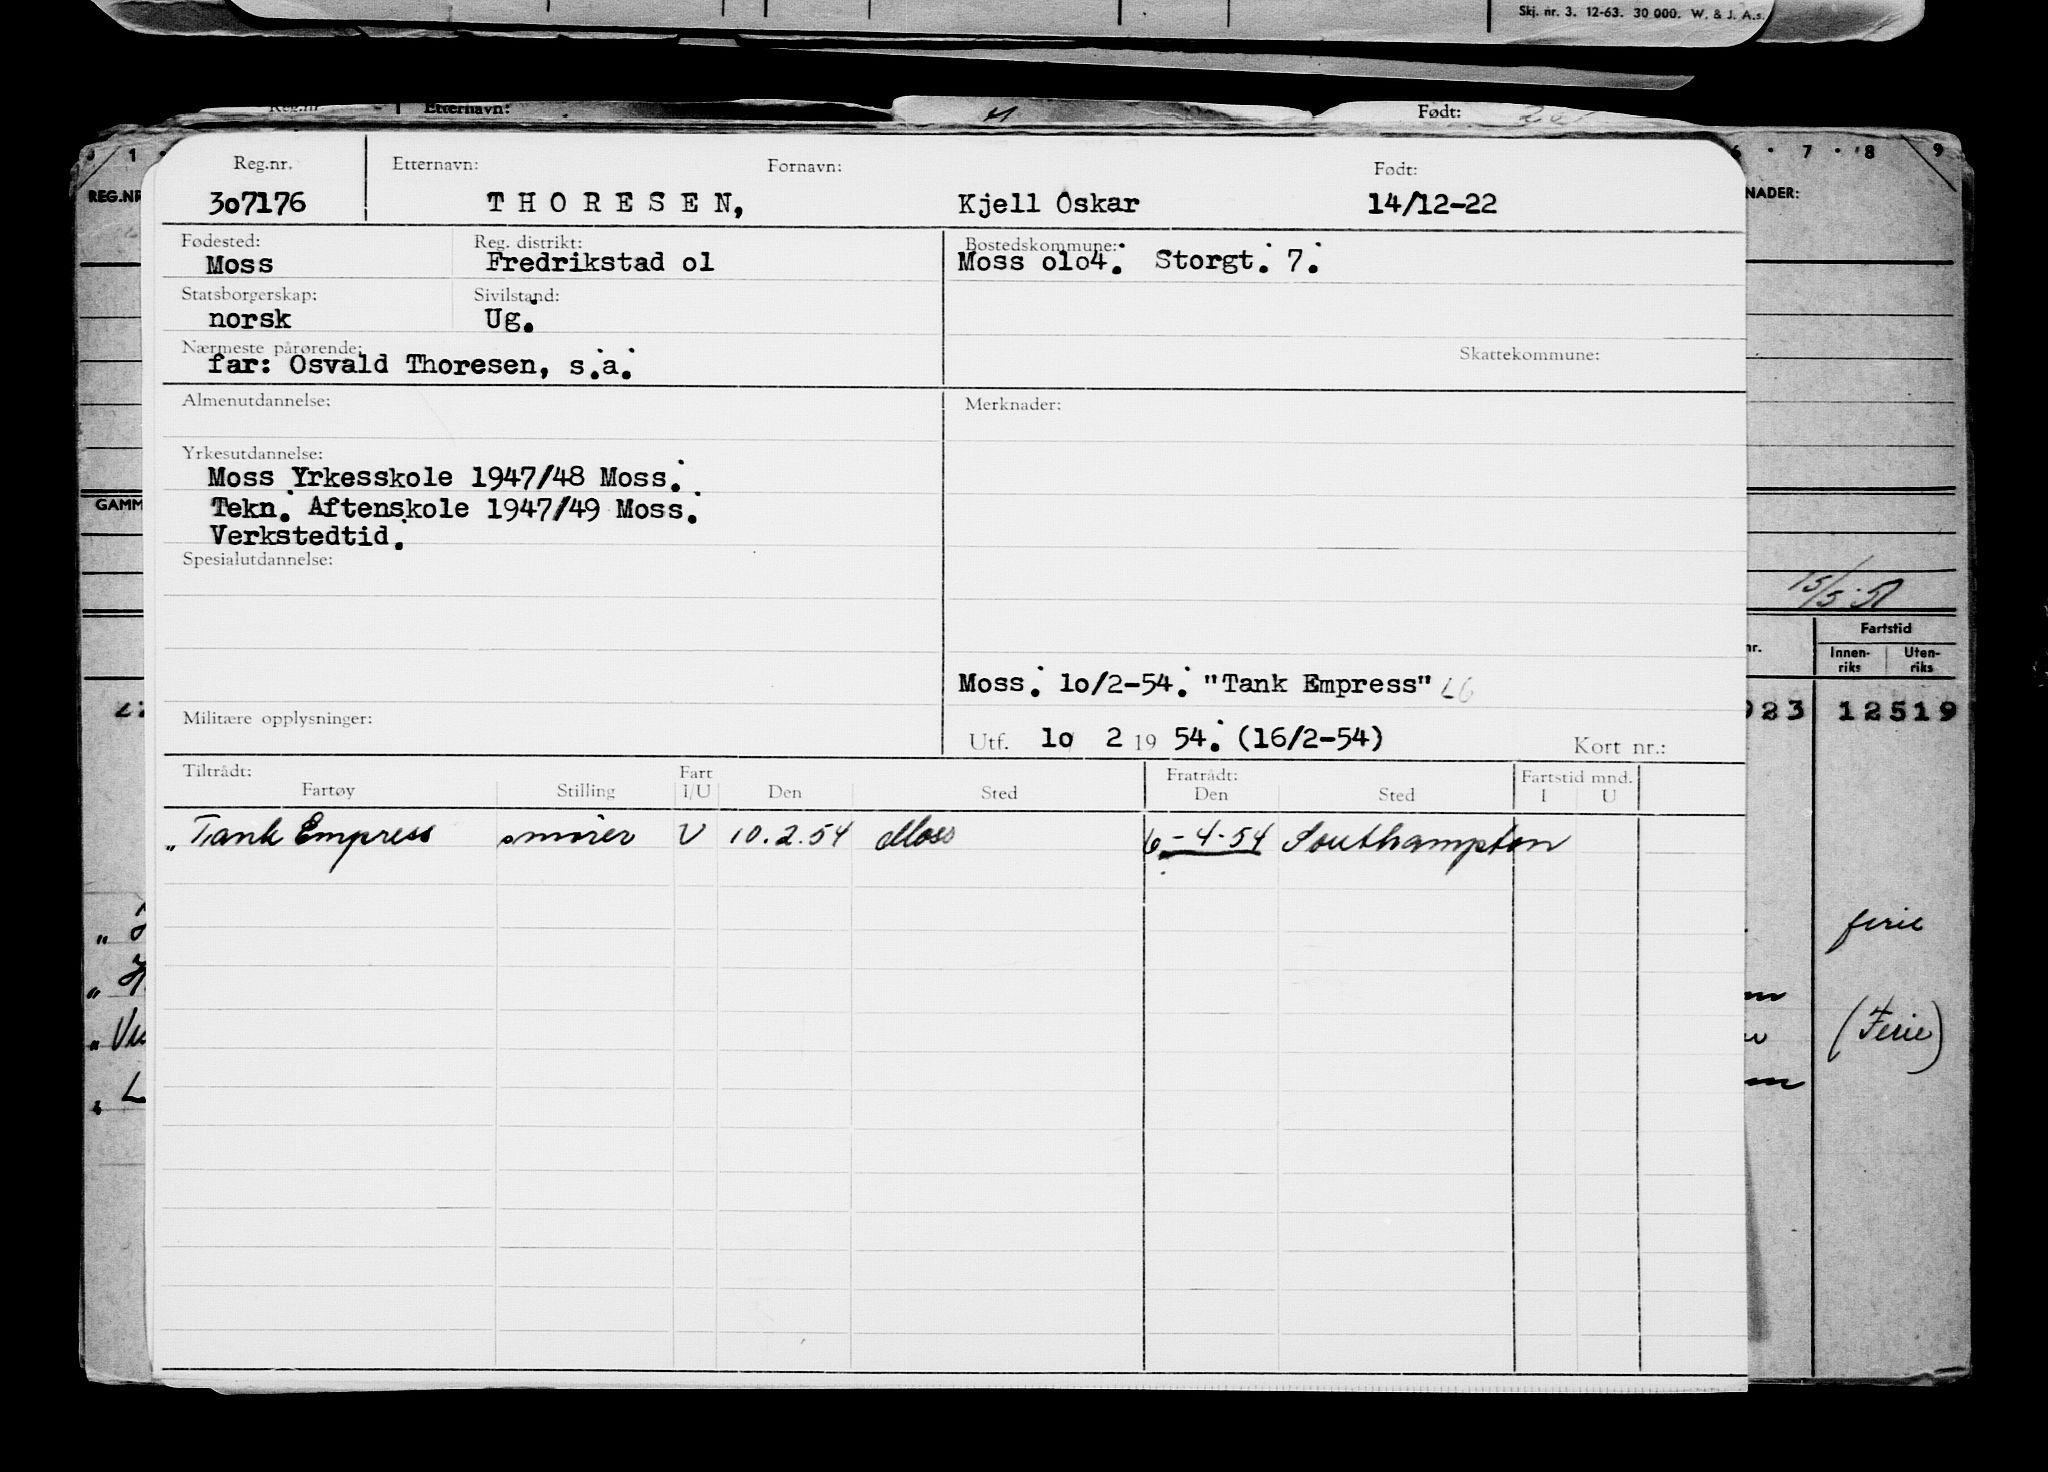 Skj. nr. 3. 12-63. 30 000. W. & J. A.s.
Reg.nr. Etternavn: Født:
1 7 8 9
REG.NR
NADER:
Reg.nr. Etternavn: Fornavn: Født:
307176 THORESEN, Kjell Oskar 14/12-22
Fødested: Reg. distrikt: Bostedskommune:
Moss Fredrikstad o1 Moss olo4. Storgt. 7.
Statsborgerskap: Sivilstand:
norsk Ug.
Nærmeste pårørende: Skattekommune:
far: Osvald Thoresen, s.a.
Almenutdannelse: Merknader:
Yrkesutdannelse:
Moss Yrkesskole 1947/48 Moss.
GAMM
Tekn. Aftenskole 1947/49 Moss.
Verkstedtid.
Spesialutdannelse:
15/5-51
Fartstid
Innen-riks Uten-riks
Moss. 1o/2-54. "Tank Empress" L6
923 12519
Militære opplysninger:
Utf. 1o 2 19 54. (16/2-54) Kort nr.:
Tiltrådt: Fart Fratrådt: Fartstid mnd.
Fartøy Stilling I/U Den Sted Den Sted I U
"Tank Empress smører U 10.2.54 Moss 6-4-54 Southampton
ferie
(Ferie)